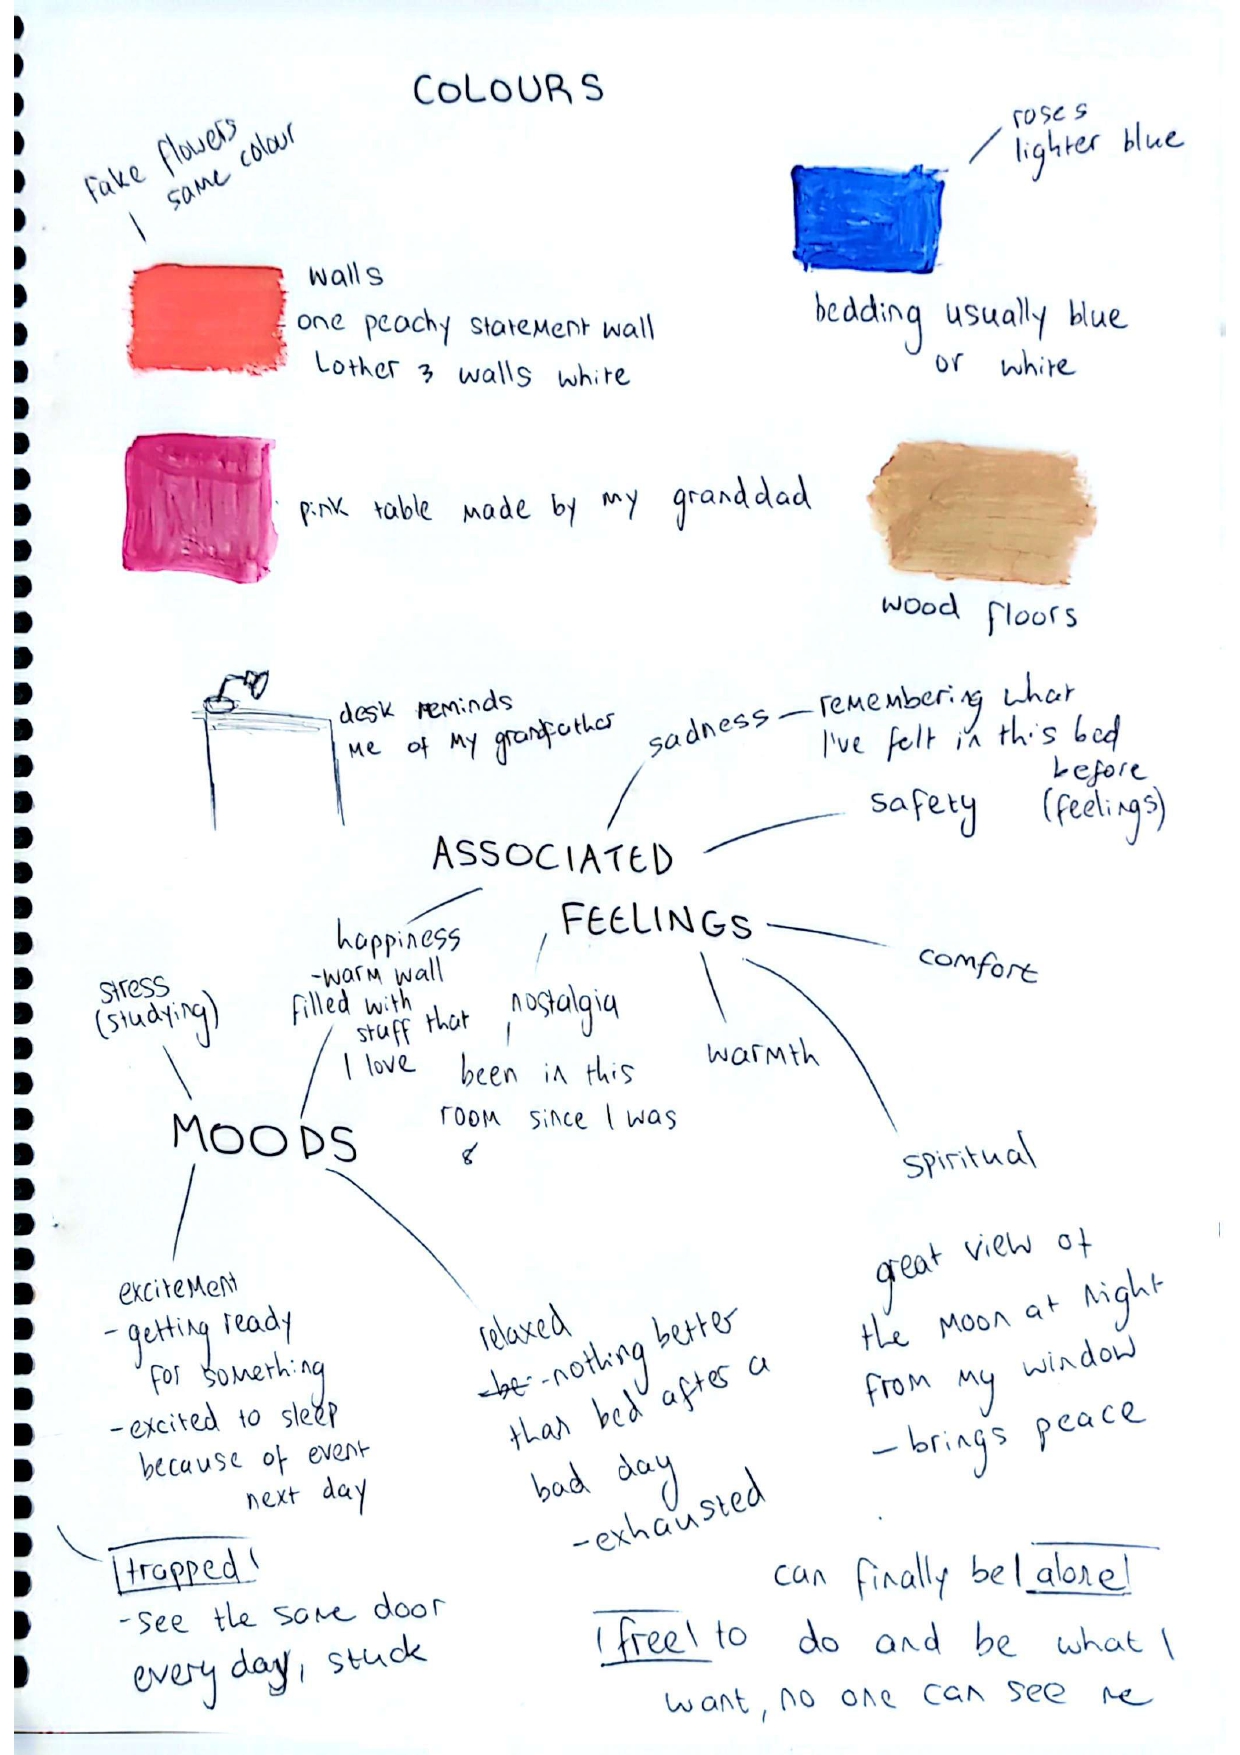 COLOURS
fake flowers
same colour
roses
lighter blue
walls
one peachy statement wall
other 3 walls white
bedding usually blue
or white
pink table made by my granddad
wood floors
desk reminds
me of my grandfather
sadness
remembering what
I've felt in this bed
before
(feelings)
safety
ASSOCIATED
FEELINGS
happiness
-warm wall
filled with
stuff that
I love
nostalgia
been in this
room since I was
8
warmth
comfort
spiritual
great view of
the moon at night
from my window
- brings peace
stress
(studying)
MOODS
excitement
- getting ready
for something
- excited to sleep
because of event
next day
relaxed
-be -nothing better
than bed after a
bad day
-exhausted
trapped
-see the same door
every day, stuck
can finally be alone
free to do and be what I
want, no one can see me